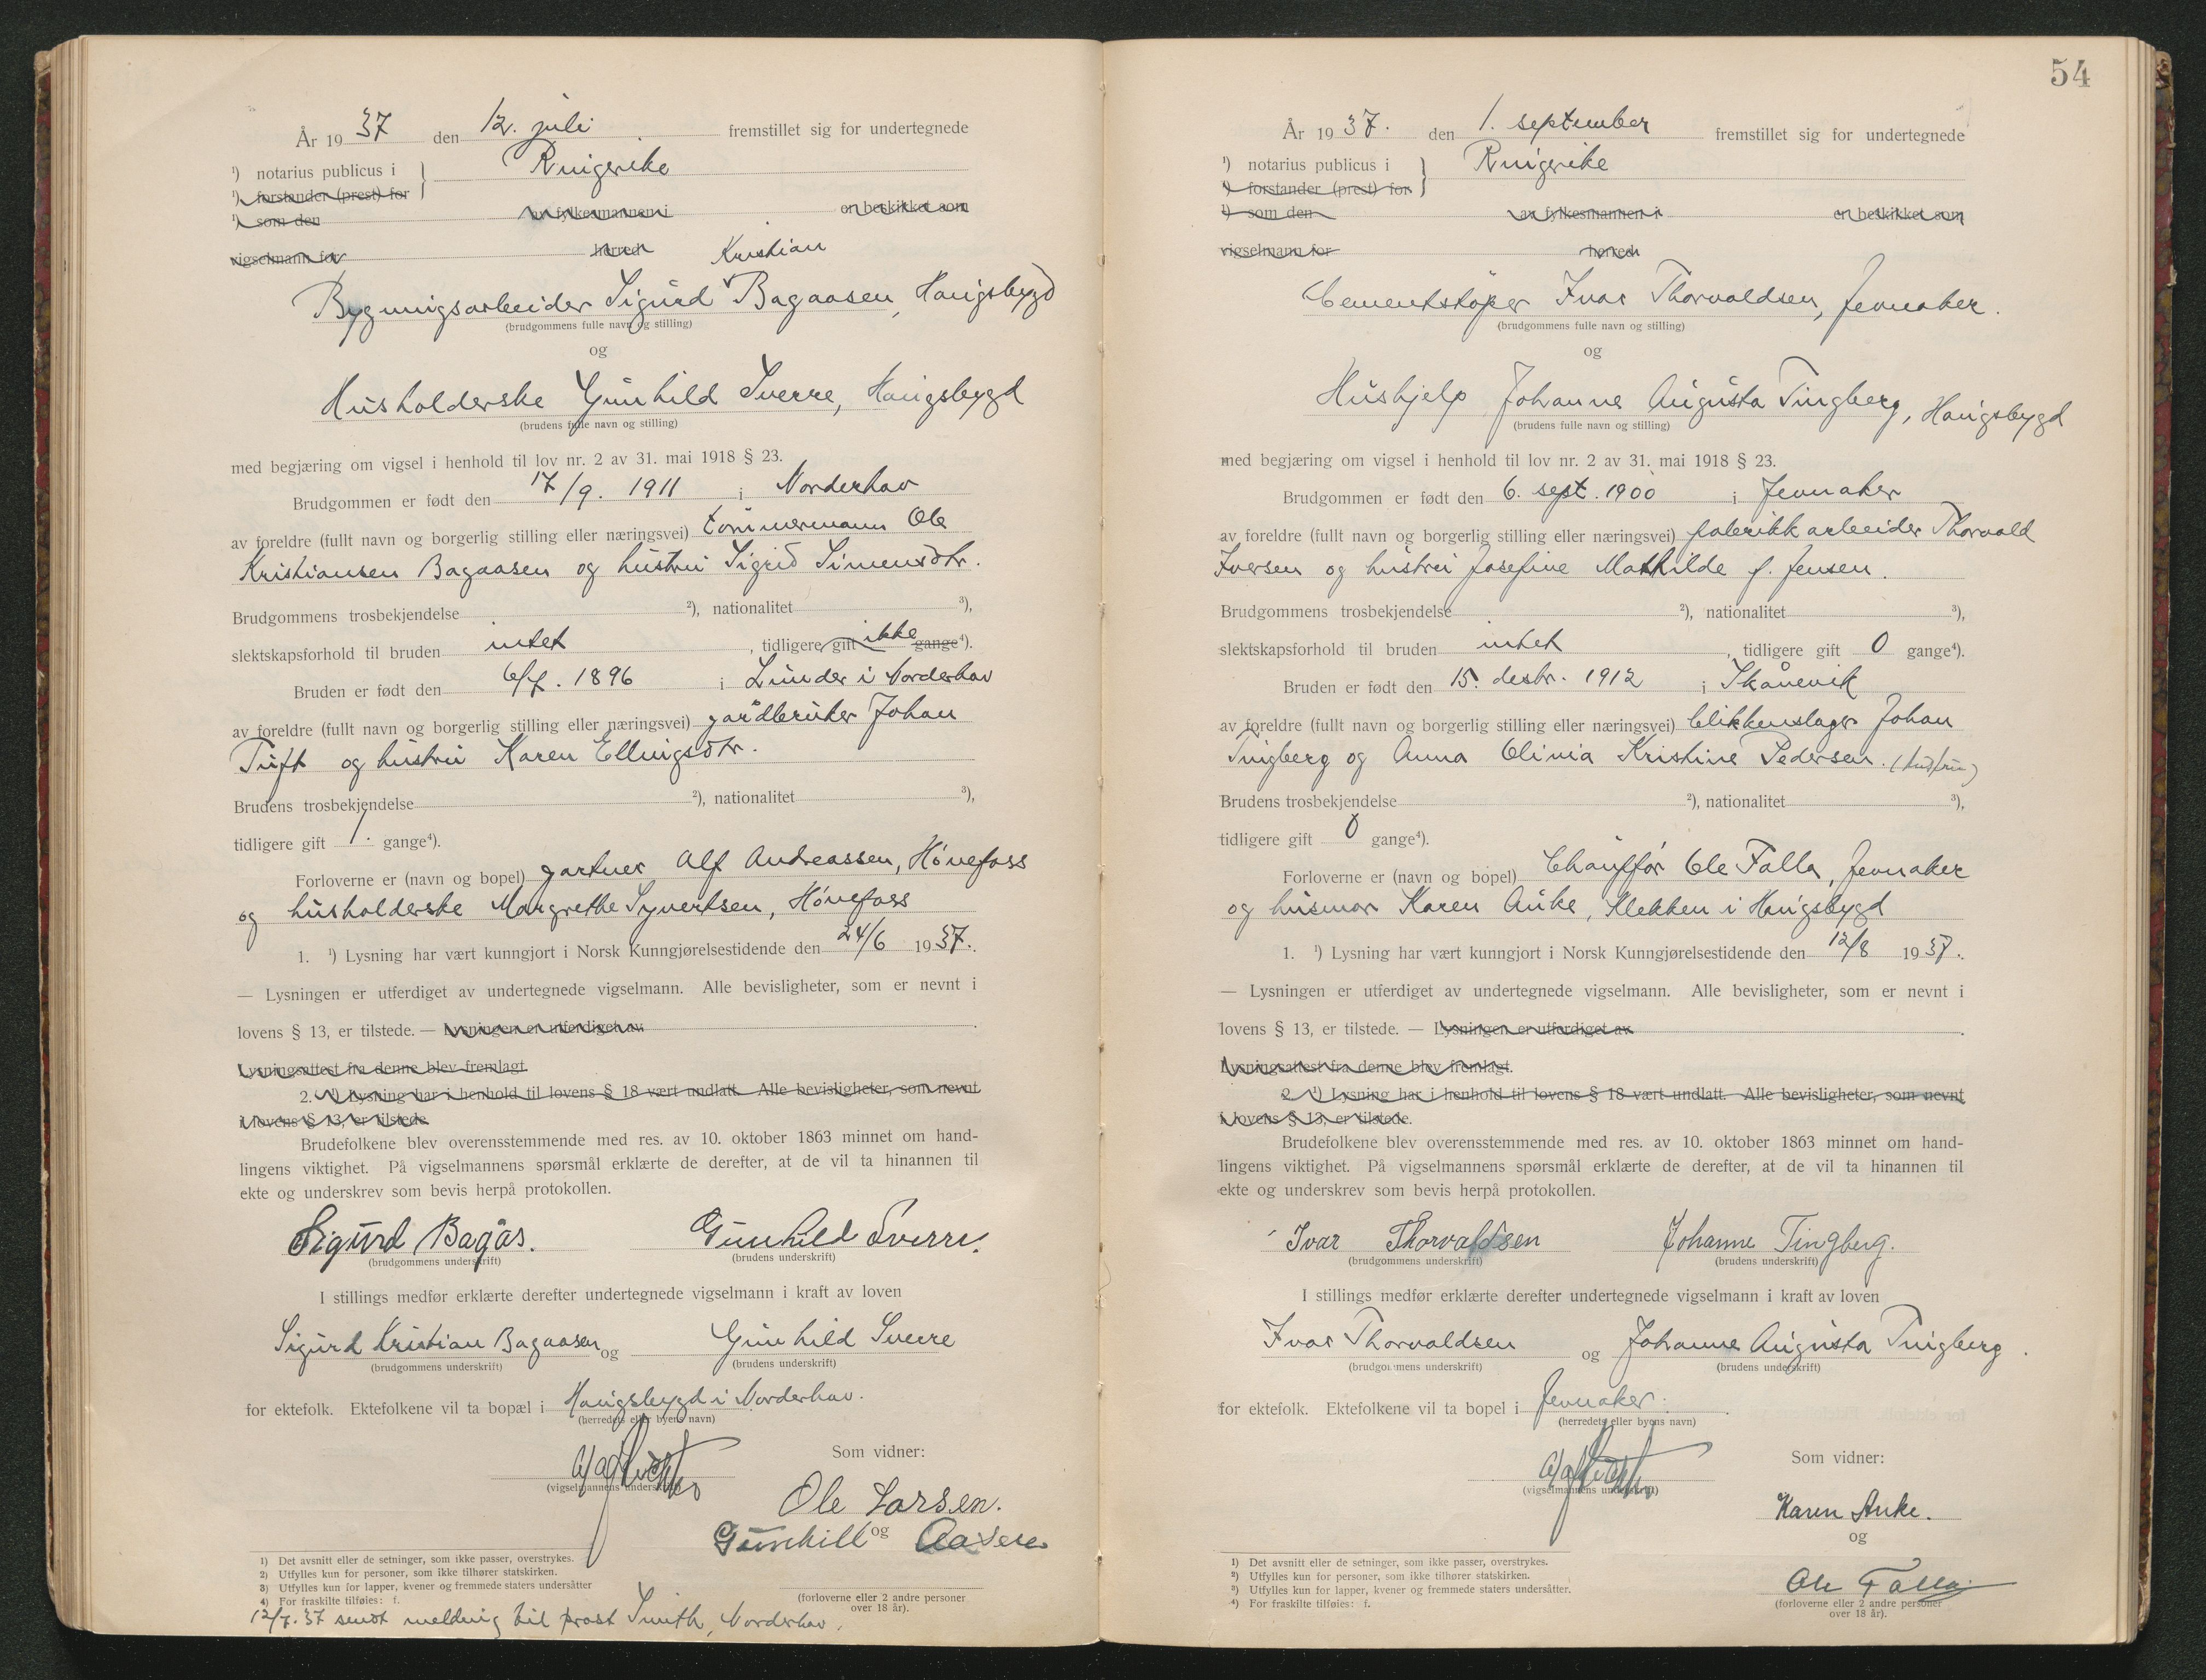 År 1937 den 12. juli fremstillet sig for undertegnede
¹) notarius publicus i } Ringerike
¹) forstander (prest) for
¹) som den av fylkesmannen i en beskikket som
vigselmann for herred
Kristian
Bygningsarbeider Sigurd Bagaasen, Haugsbygd
(brudgommens fulle navn og stilling)
og
Husholderske Gunhild Sverre, Haugsbygd
(brudens fulle navn og stilling)
med begjæring om vigsel i henhold til lov nr. 2 av 31. mai 1918 § 23.
Brudgommen er født den 17/9. 1911 i Norderhov
av foreldre (fullt navn og borgerlig stilling eller næringsvei) tømmermann Ole
Kristiansen Bagaasen og hustru Sigrid Simensdtr.
Brudgommens trosbekjendelse ²), nationalitet ³),
slektskapsforhold til bruden intet, tidligere gift ikke gange⁴).
Bruden er født den 6/7. 1896 i Lunder i Norderhov
av foreldre (fullt navn og borgerlig stilling eller næringsvei) gårdbruker Johan
Tuft og hustru Karen Ellingsdtr.
Brudens trosbekjendelse ²), nationalitet ³),
tidligere gift 1. gange⁴).
Forloverne er (navn og bopel) gartner Alf Andreassen, Hønefoss
og husholderske Margrethe Syvertsen, Hønefoss
1. ¹) Lysning har vært kunngjort i Norsk Kunngjørelsestidende den 24/6 1937.
— Lysningen er utferdiget av undertegnede vigselmann. Alle bevisligheter, som er nevnt i
lovens § 13, er tilstede. — Lysningen er utferdiget av
Lysningsattest fra denne blev fremlagt.
2. ¹) Lysning har i henhold til lovens § 18 vært undlatt. Alle bevisligheter, som nevnt
i lovens § 13, er tilstede.
Brudefolkene blev overensstemmende med res. av 10. oktober 1863 minnet om hand-
lingens viktighet. På vigselmannens spørsmål erklærte de derefter, at de vil ta hinannen til
ekte og underskrev som bevis herpå protokollen.
Sigurd Bagås. Gunhild Sverre.
(brudgommens underskrift) (brudens underskrift)
I stillings medfør erklærte derefter undertegnede vigselmann i kraft av loven
Sigurd Kristian Bagaasen og Gunhild Sverre
(brudgommens underskrift) (brudens underskrift)
for ektefolk. Ektefolkene vil ta bopæl i Haugsbygd i Norderhov.
(herredets eller byens navn)
Som vidner:
(vigselmannens underskrift)
Ole Larsen.
Gunhild og Aasen
1) Det avsnitt eller de setninger, som ikke passer, overstrykes.
2) Utfylles kun for personer, som ikke tilhører statskirken.
3) Utfylles kun for lapper, kvener og fremmede staters undersåtter
4) For fraskilte tilføies: f.
(forloverne eller 2 andre personer
over 18 år).
12/7.37 sendt melding til prost Smith, Norderhov.
54
År 1937. den 1. september fremstillet sig for undertegnede
¹) notarius publicus i } Ringerike
¹) forstander (prest) for
¹) som den av fylkesmannen i en beskikket som
vigselmann for herred
Cementstøper Ivar Thorvaldsen, Jevnaker.
(brudgommens fulle navn og stilling)
og
Hushjelp Johanne Augusta Tingberg, Haugsbygd
(brudens fulle navn og stilling)
med begjæring om vigsel i henhold til lov nr. 2 av 31. mai 1918 § 23.
Brudgommen er født den 6. sept. 1900 i Jevnaker
av foreldre (fullt navn og borgerlig stilling eller næringsvei) fabrikkarbeider Thorvald
Iversen og hustru Josefine Mathilde f. Jensen.
Brudgommens trosbekjendelse ²), nationalitet ³),
slektskapsforhold til bruden intet, tidligere gift 0 gange⁴).
Bruden er født den 15. desbr. 1912 i Skånevik
av foreldre (fullt navn og borgerlig stilling eller næringsvei) blikkenslager Johan
Tingberg og Anna Olivia Kristine Pedersen. (hustru)
Brudens trosbekjendelse ²), nationalitet ³),
tidligere gift 0 gange⁴).
Forloverne er (navn og bopel) Chauffør Ole Falla, Jevnaker
og husmor Karen Anke, Klekken i Haugsbygd
1. ¹) Lysning har vært kunngjort i Norsk Kunngjørelsestidende den 12/8 1937.
— Lysningen er utferdiget av undertegnede vigselmann. Alle bevisligheter, som er nevnt i
lovens § 13, er tilstede. — Lysningen er utferdiget av
Lysningsattest fra denne blev fremlagt.
2. ¹) Lysning har i henhold til lovens § 18 vært undlatt. Alle bevisligheter, som nevnt
i lovens § 13, er tilstede.
Brudefolkene blev overensstemmende med res. av 10. oktober 1863 minnet om hand-
lingens viktighet. På vigselmannens spørsmål erklærte de derefter, at de vil ta hinannen til
ekte og underskrev som bevis herpå protokollen.
Ivar Thorvaldsen Johanne Tingberg.
(brudgommens underskrift) (brudens underskrift)
I stillings medfør erklærte derefter undertegnede vigselmann i kraft av loven
Ivar Thorvaldsen og Johanne Augusta Tingberg.
(brudgommens underskrift) (brudens underskrift)
for ektefolk. Ektefolkene vil ta bopel i Jevnaker.
(herredets eller byens navn)
Som vidner:
(vigselmannens underskrift)
Karen Anke.
og
Ole Falla
1) Det avsnitt eller de setninger, som ikke passer, overstrykes.
2) Utfylles kun for personer, som ikke tilhører statskirken.
3) Utfylles kun for lapper, kvener og fremmede staters undersåtter.
4) For fraskilte tilføies: f.
(forloverne eller 2 andre personer
over 18 år).